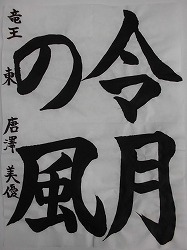 令月
の風
竜王東 唐澤美優